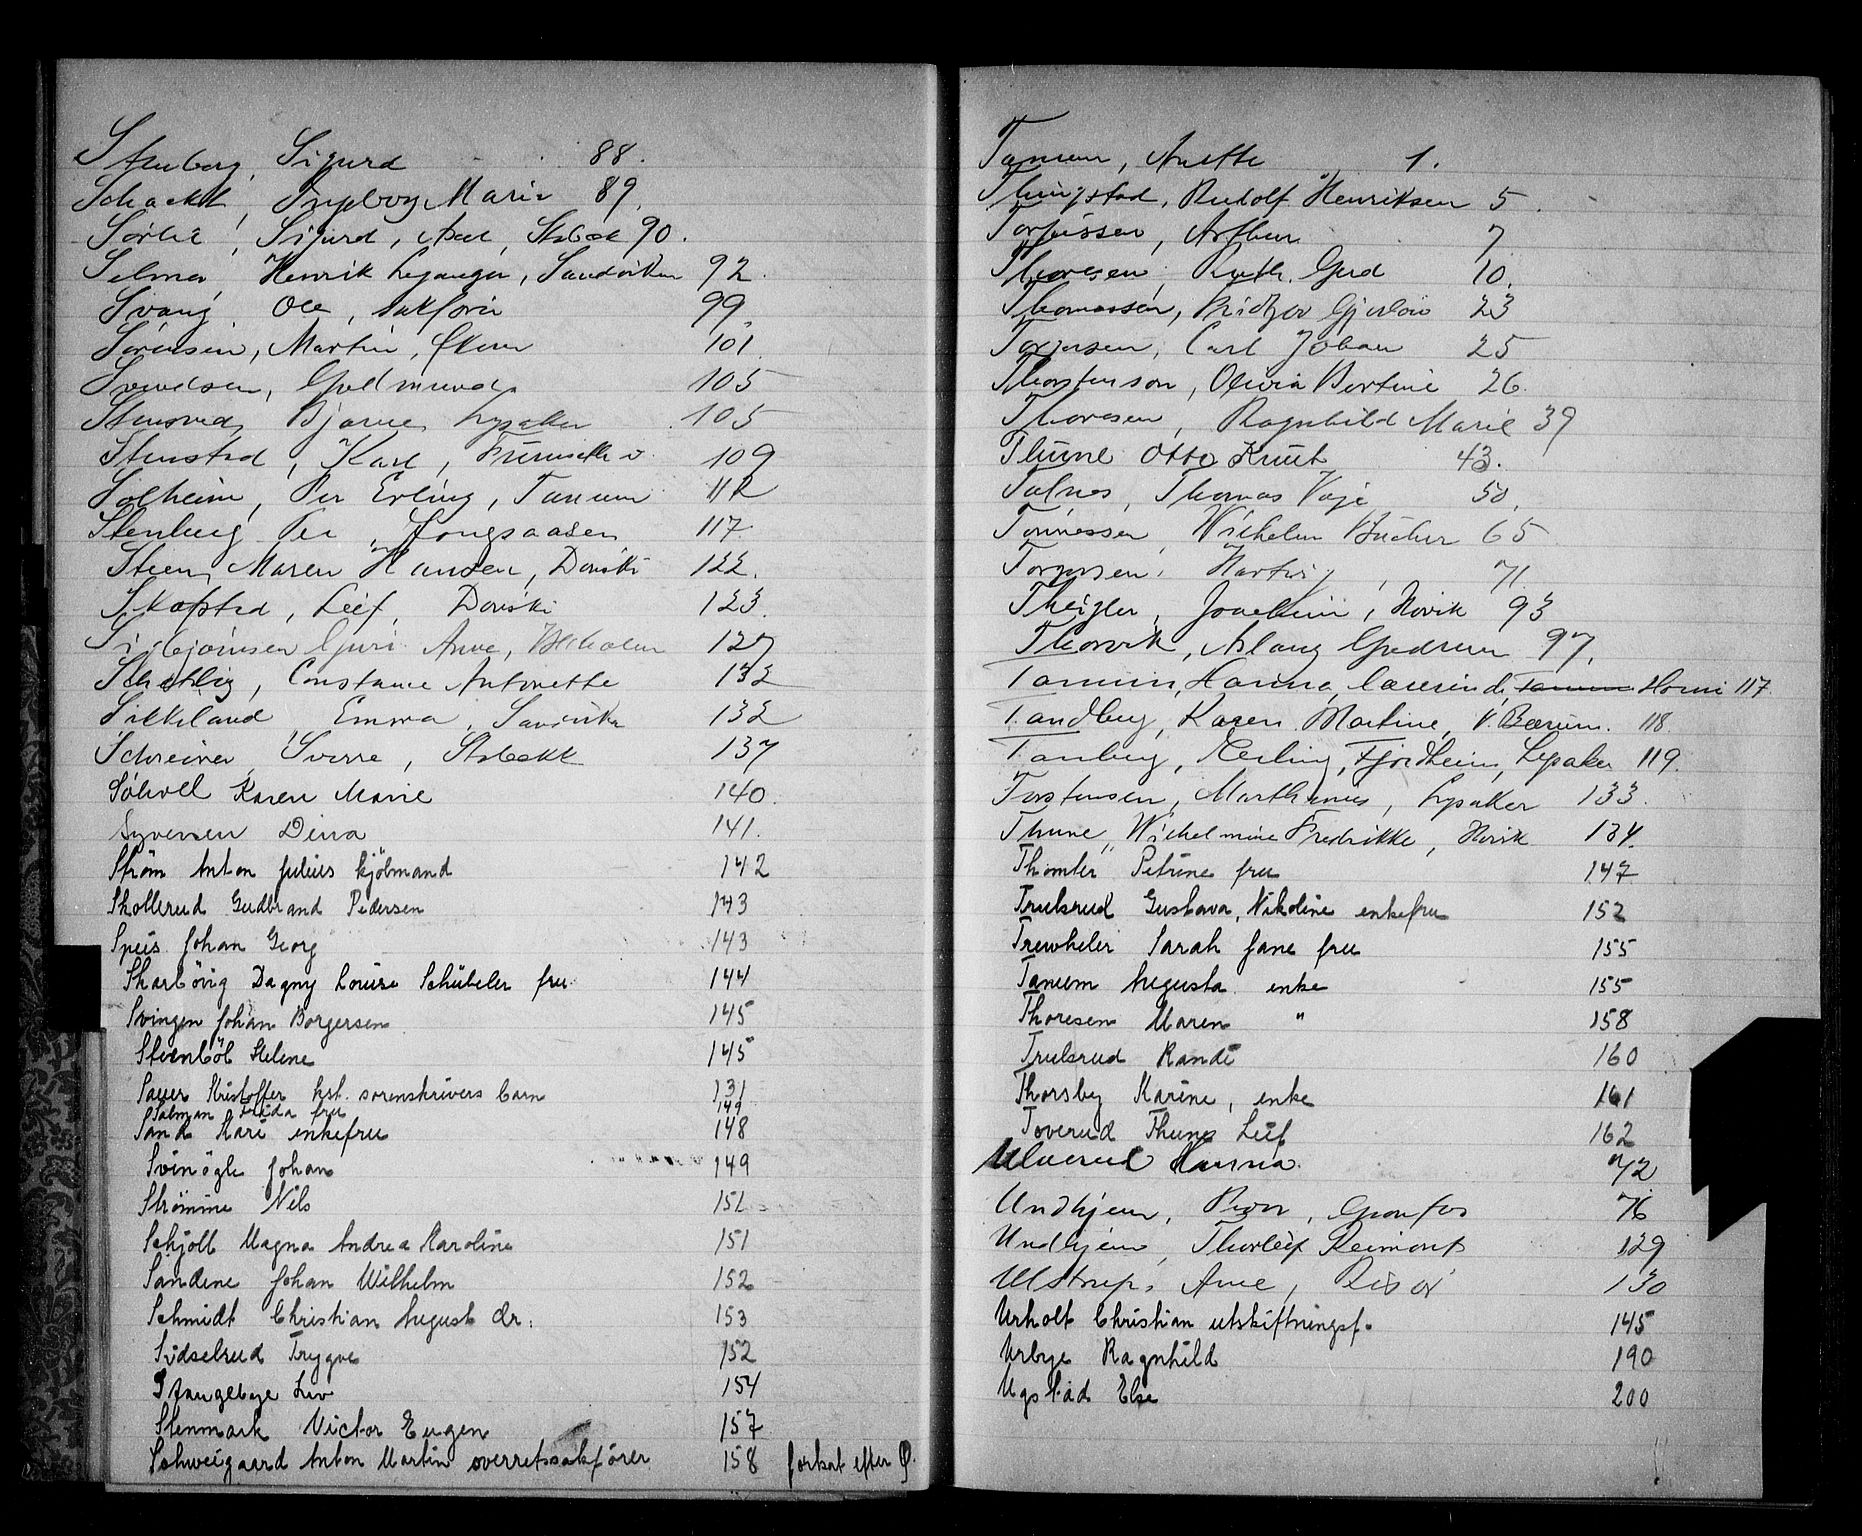 Stenberg, Sigurd 88.
Schacht, Ingeborg Marie 89.
Sørlie, Sigurd, Axel, Stabæk 90.
Selmer, Henrik Lysanger, Sandviken 92.
Svang, Ole, 99.
Sørensen, Martin, 101.
Svendsen, Gudmund 105
Stensrud, Bjarne, Lysaker 105
Stensted, Karl, 109
Solheim, Per Erling, Tanum 112
Stenberg Per, Jongsaasen 117.
Steen, Maren Hansen, Dønski 122.
Skofsted, Leif, Dønski 123.
Sigbjørnsen Guri Anne, 127
Schetlig, Constance Antonette 132
Silkeland Emma, Sandvika 132
Schreiner Sverre, Stabekk 137
Sølvoll Karen Marie 140.
Syversen Dina 141.
Strøm Anton Julius kjøbmand 142
Skollerud Gudbrand Pedersen 143
Speis Johan Georg 143
Skarbövig Dagny Louise Schübeler fru 144
Svingen Johan Borgersen 145
Steenböl Helene 145
Sauer Kristoffer kst. sorenskrivers barn 131
Salman Frida fru 149
Sand Kari enkefru 148
Svinögle Johan 149
Strømme Nils 151
Schjøll Magna Andrea Karoline 151
Sandene Johan Wilhelm 152
Schmidt Christian August dr. 153
Sidselrud Trygve 152
Stangebye Liv 154
Stenmark Victor Eugen 157
Schweigaard Anton Martin overretssakfører 158 forts. efter Ø.
Tanum, Anette 1.
Thingstad, Rudolf Henriksen 5.
Torjussen, Arthur 7
Thoresen, Ruth Gerd 10.
Thomassen, Gjerløw 23
Torgersen, Carl Johan 25
Thorstenson, Olivia Bertine 26.
Thoresen, Ragnhild Marie 39
Thune Otto Knut 43.
Talnes, Thomas Vaje 50.
Tønnessen, Wilhelm Bücher 65
Torgersen, Hartvig, 71.
Theigler, Joachim, Høvik 93
Thorvik, Aslaug Gudrun 97.
Tanum, Hanna Laurendi, Tanum Horni 117
Tandberg, Karen Martine, V. Bærum. 118.
Tanberg, Erling, Fjordheim, Lysaker 119.
Torstensen, Marthinus, Lysaker 133.
Thune, Wilhelmine Fredrikke, Høvik 134.
Thomter Petrine fru 147
Trulsrud Gustava, Nikoline enkefru 152
Trewheler Sarah Jane fru 155
Tanum Augusta enke 155
Thoresen Maren " 158
Trulsrud Randi 160
Thorsby Karine, enke 161
Toverud Thune Leif 162
Ulverud Hanna. 72
Undhjem, 76
Undhjem, Thorleif Reimont 129
Ulstrup, Arne, 130
Urholt Christian utskiftningsf. 145
Urbye Ragnhild 190
Ugstad Else 200